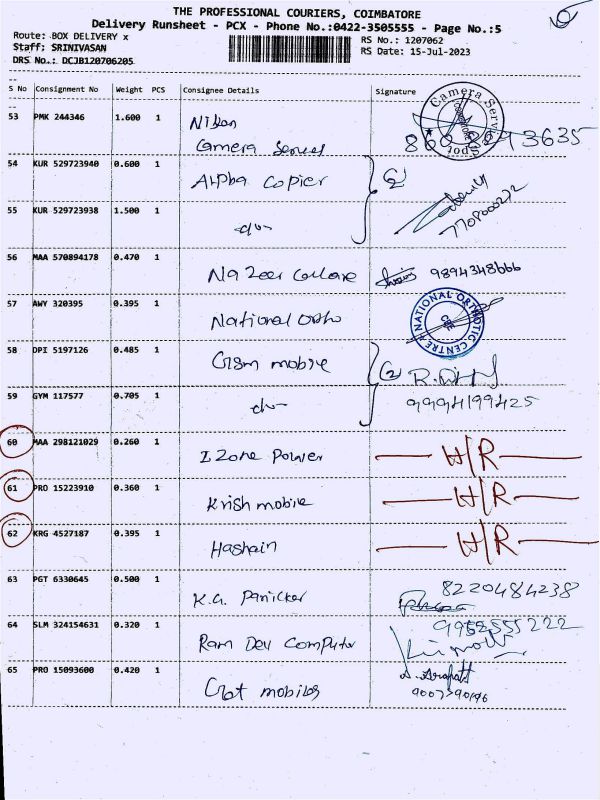 THE PROFESSIONAL COURIERS, COIMBATORE
Delivery Runsheet - PCX - Phone No.:0422-3505555 - Page No.:5
Route: BOX DELIVERY x RS No.: 1207062
Staff: SRINIVASAN RS Date: 15-Jul-2023
DRS No.: DCJB120706205
S No Consignment No Weight PCS Consignee Details Signature
53 PMK 244346 1.600 1 Nikon
Camera Services
Camera Service Spot
54 KUR 529723940 0.600 1 Alpha Copier 2
55 KUR 529723938 1.500 1 do 7708000272
56 MAA 570894178 0.470 1 Nazeer 9894348666
57 AWY 320395 0.395 1 National Ortho NATIONAL ORTHOTIC CENTRE CBE
58 DPI 5197126 0.485 1 Gsm mobile 2
59 GYM 117577 0.705 1 do 9994199425
60 MAA 298121029 0.260 1 I Zone Power H/R
61 PRO 15223910 0.360 1 Krish mobile H/R
62 KRG 4527187 0.395 1 Hashain H/R
63 PGT 6330645 0.500 1 K.G. Panicker 8220484238
64 SLM 324154631 0.320 1 Ram Dev Computer 9952555222
65 PRO 15093600 0.420 1 mobiles